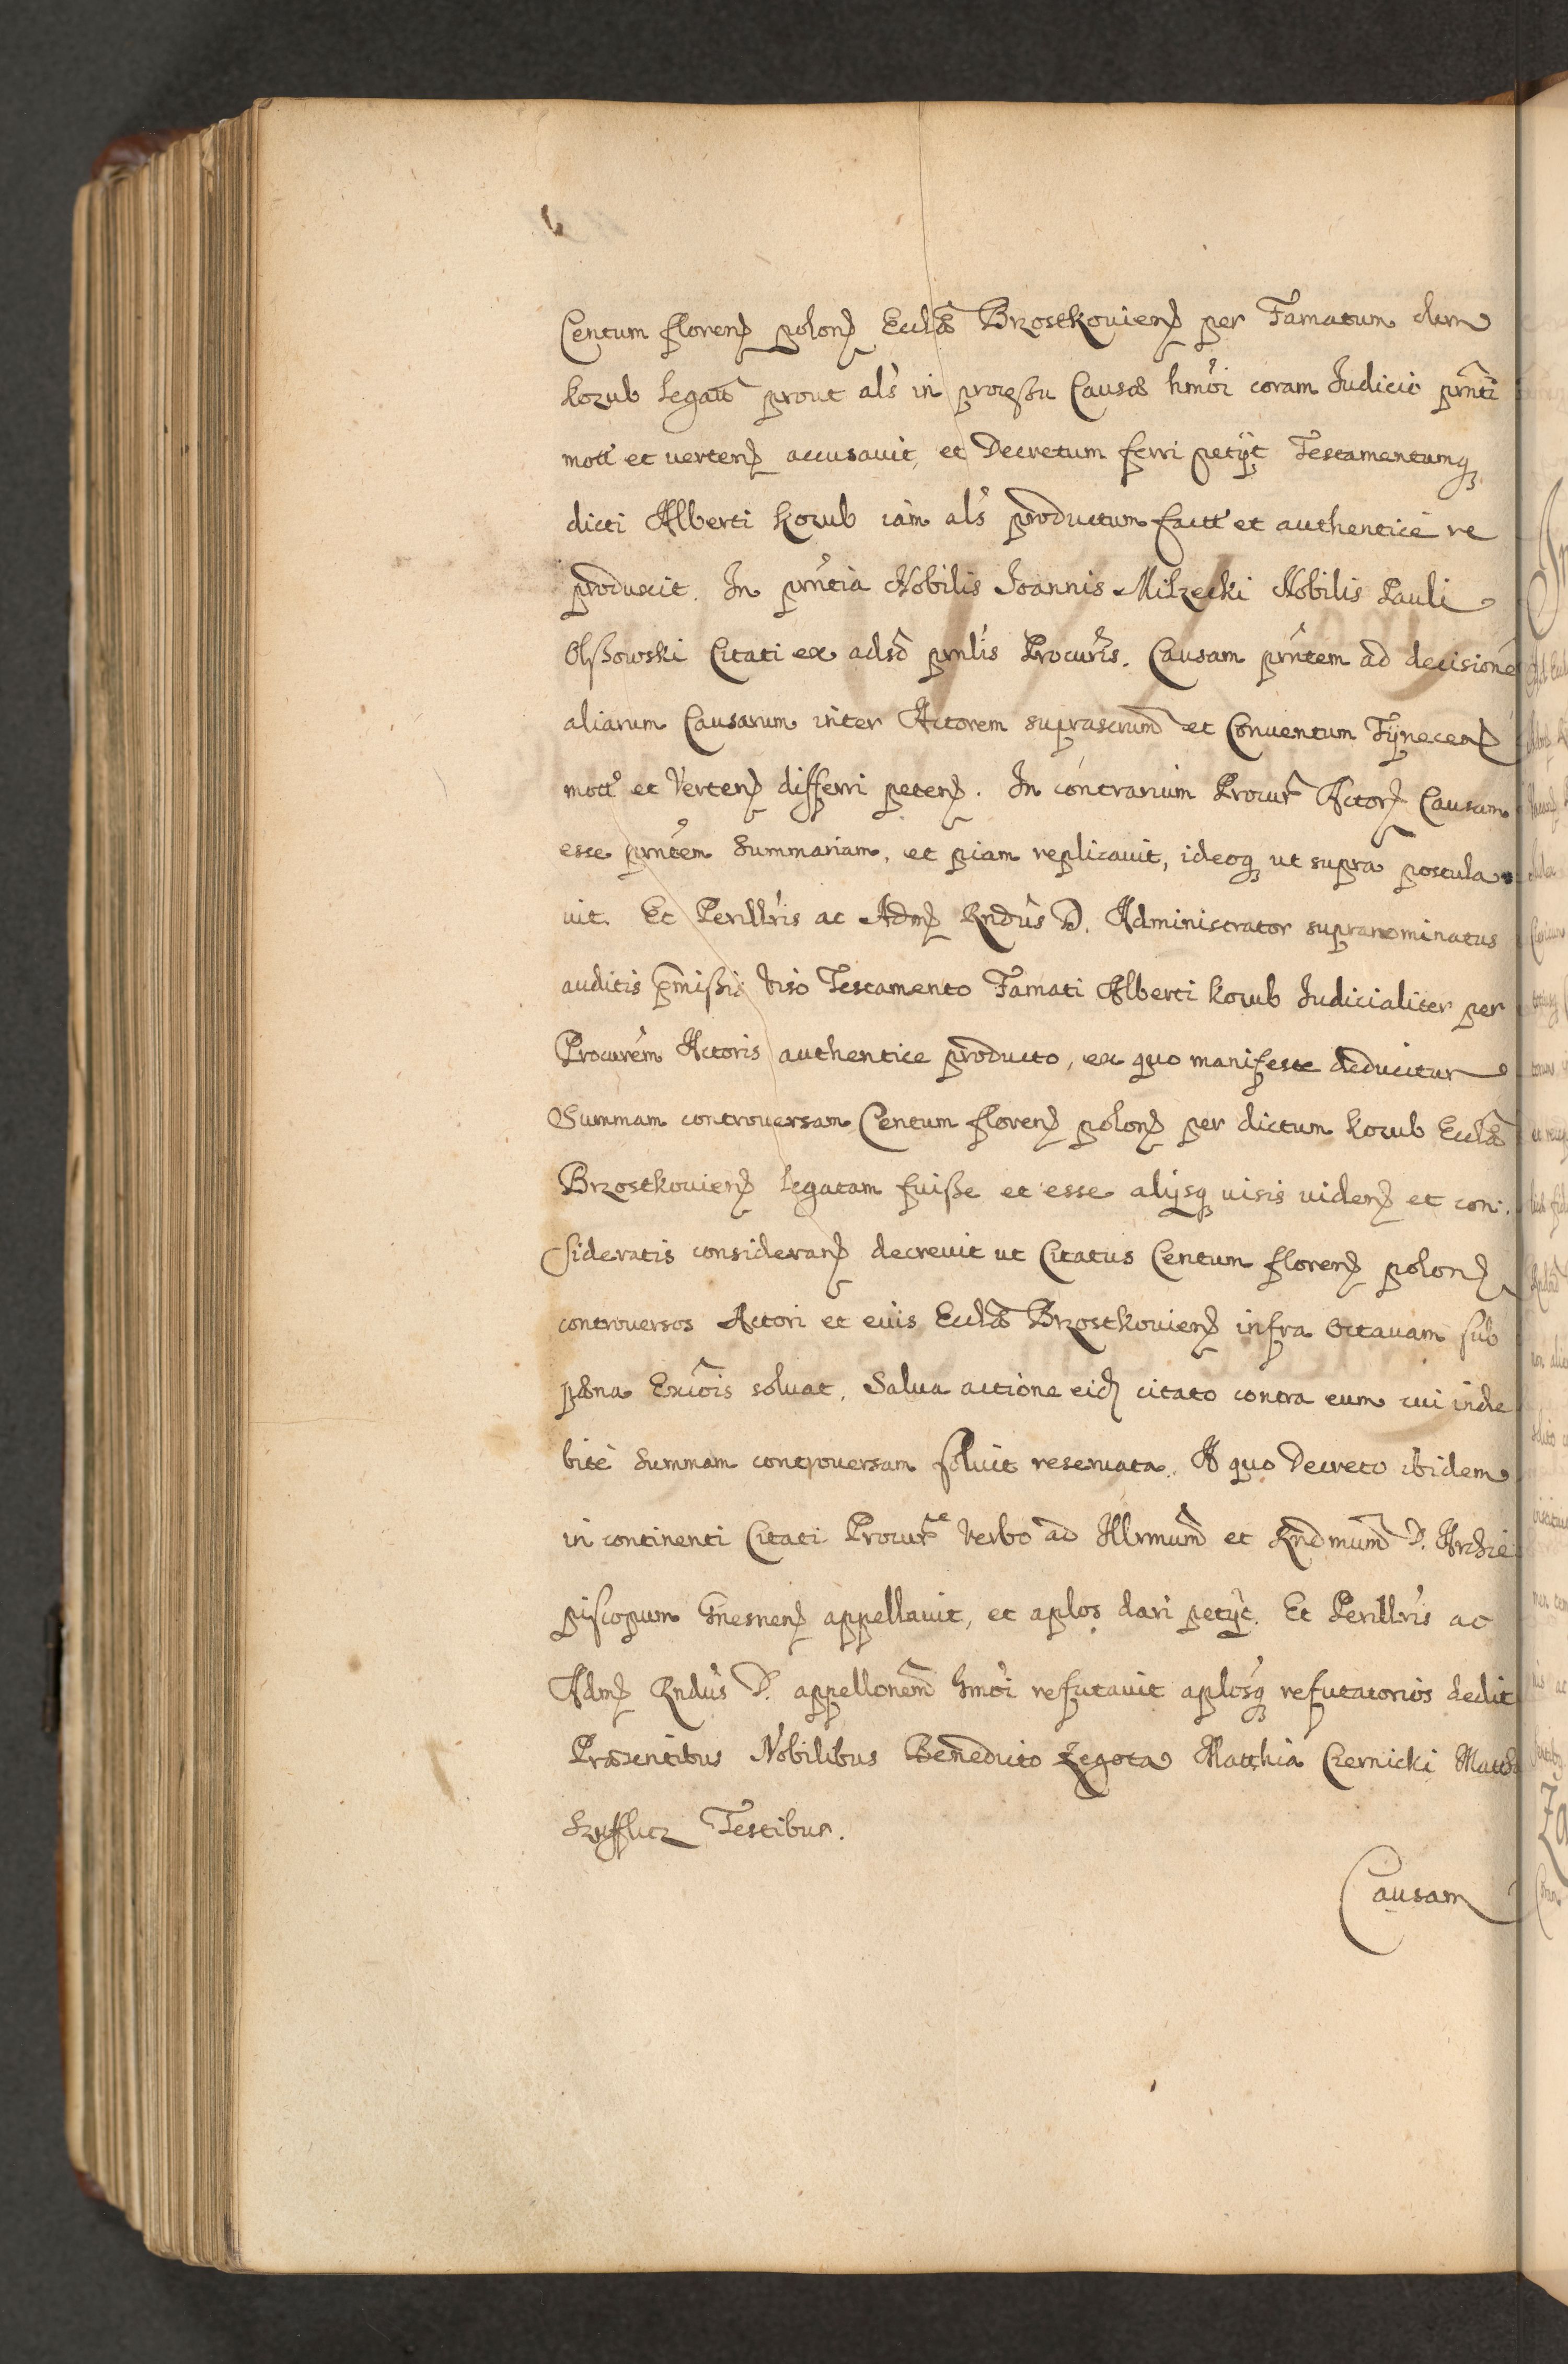 Centum florenꝭ polonꝭ Ecclæ̃ Brzostkovienꝭ per Famatum olim
kozub legatã prout als in processu Causæ hmoi coram Iudicio prnti
mott et vertenꝭ accusavit, et Decretum ferri petÿt Testamentumqꝫ
dicti Alberti Kozub iam als productum factt et authenticè re
produxit. In prntia Nobilis Ioannis Milzecki Nobilis Pauli
Olßowski Citati ex adsõ prnlis Procuris. Causam prntem ad decisionẽ
aliarum Causarum inter Actorem suprascrum et Conventum Tÿnecenꝭ
mott et Vertenꝭ differri petenꝭ. In contrarium Procur Actorꝭ Causam
esse prntem Summariam, et piam replicavit, ideoqꝫ ut supra postula
vit. Et Perillris ac Admꝭ Rndus D. Administrator supranominatus
auditis p̃missis viso Testamento Famati Alberti kozub Iudicialiter per
Procurem Actoris authentice producto, ex quo manifeste deducitur
Summam controversam Centum florenꝭ polonꝭ per dictum kozub Ecclæ̃
Brzostkovienꝭ legatam fuisse et esse alÿsqꝫ visis videnꝭ et con:
sideratis consideranꝭ decrevit ut Citatus Centum florenꝭ polonꝭ
controversos Actori et eius Ecclæ̃ Brzostkovienꝭ infra Octavam sub
pæna Excõis solvat. Salva actione eidꝭ citato contra eum cui inde
bite Summam controversam solvit reservata. A quo Decreto ibidem
in continenti Citati Procur Verbo ad Illrmum et Rndmum D. Archie
piscopum Gnesnenꝭ appellavit, et aplos dari petÿt. Et Perillris ac
Admꝭ Rndus D. appellonem hmoi refutavit aplosqꝫ refutatorios dedit
Præsentibus Nobilibus Benedicto Zegota Matthia Czernicki
Testibus.
Causam